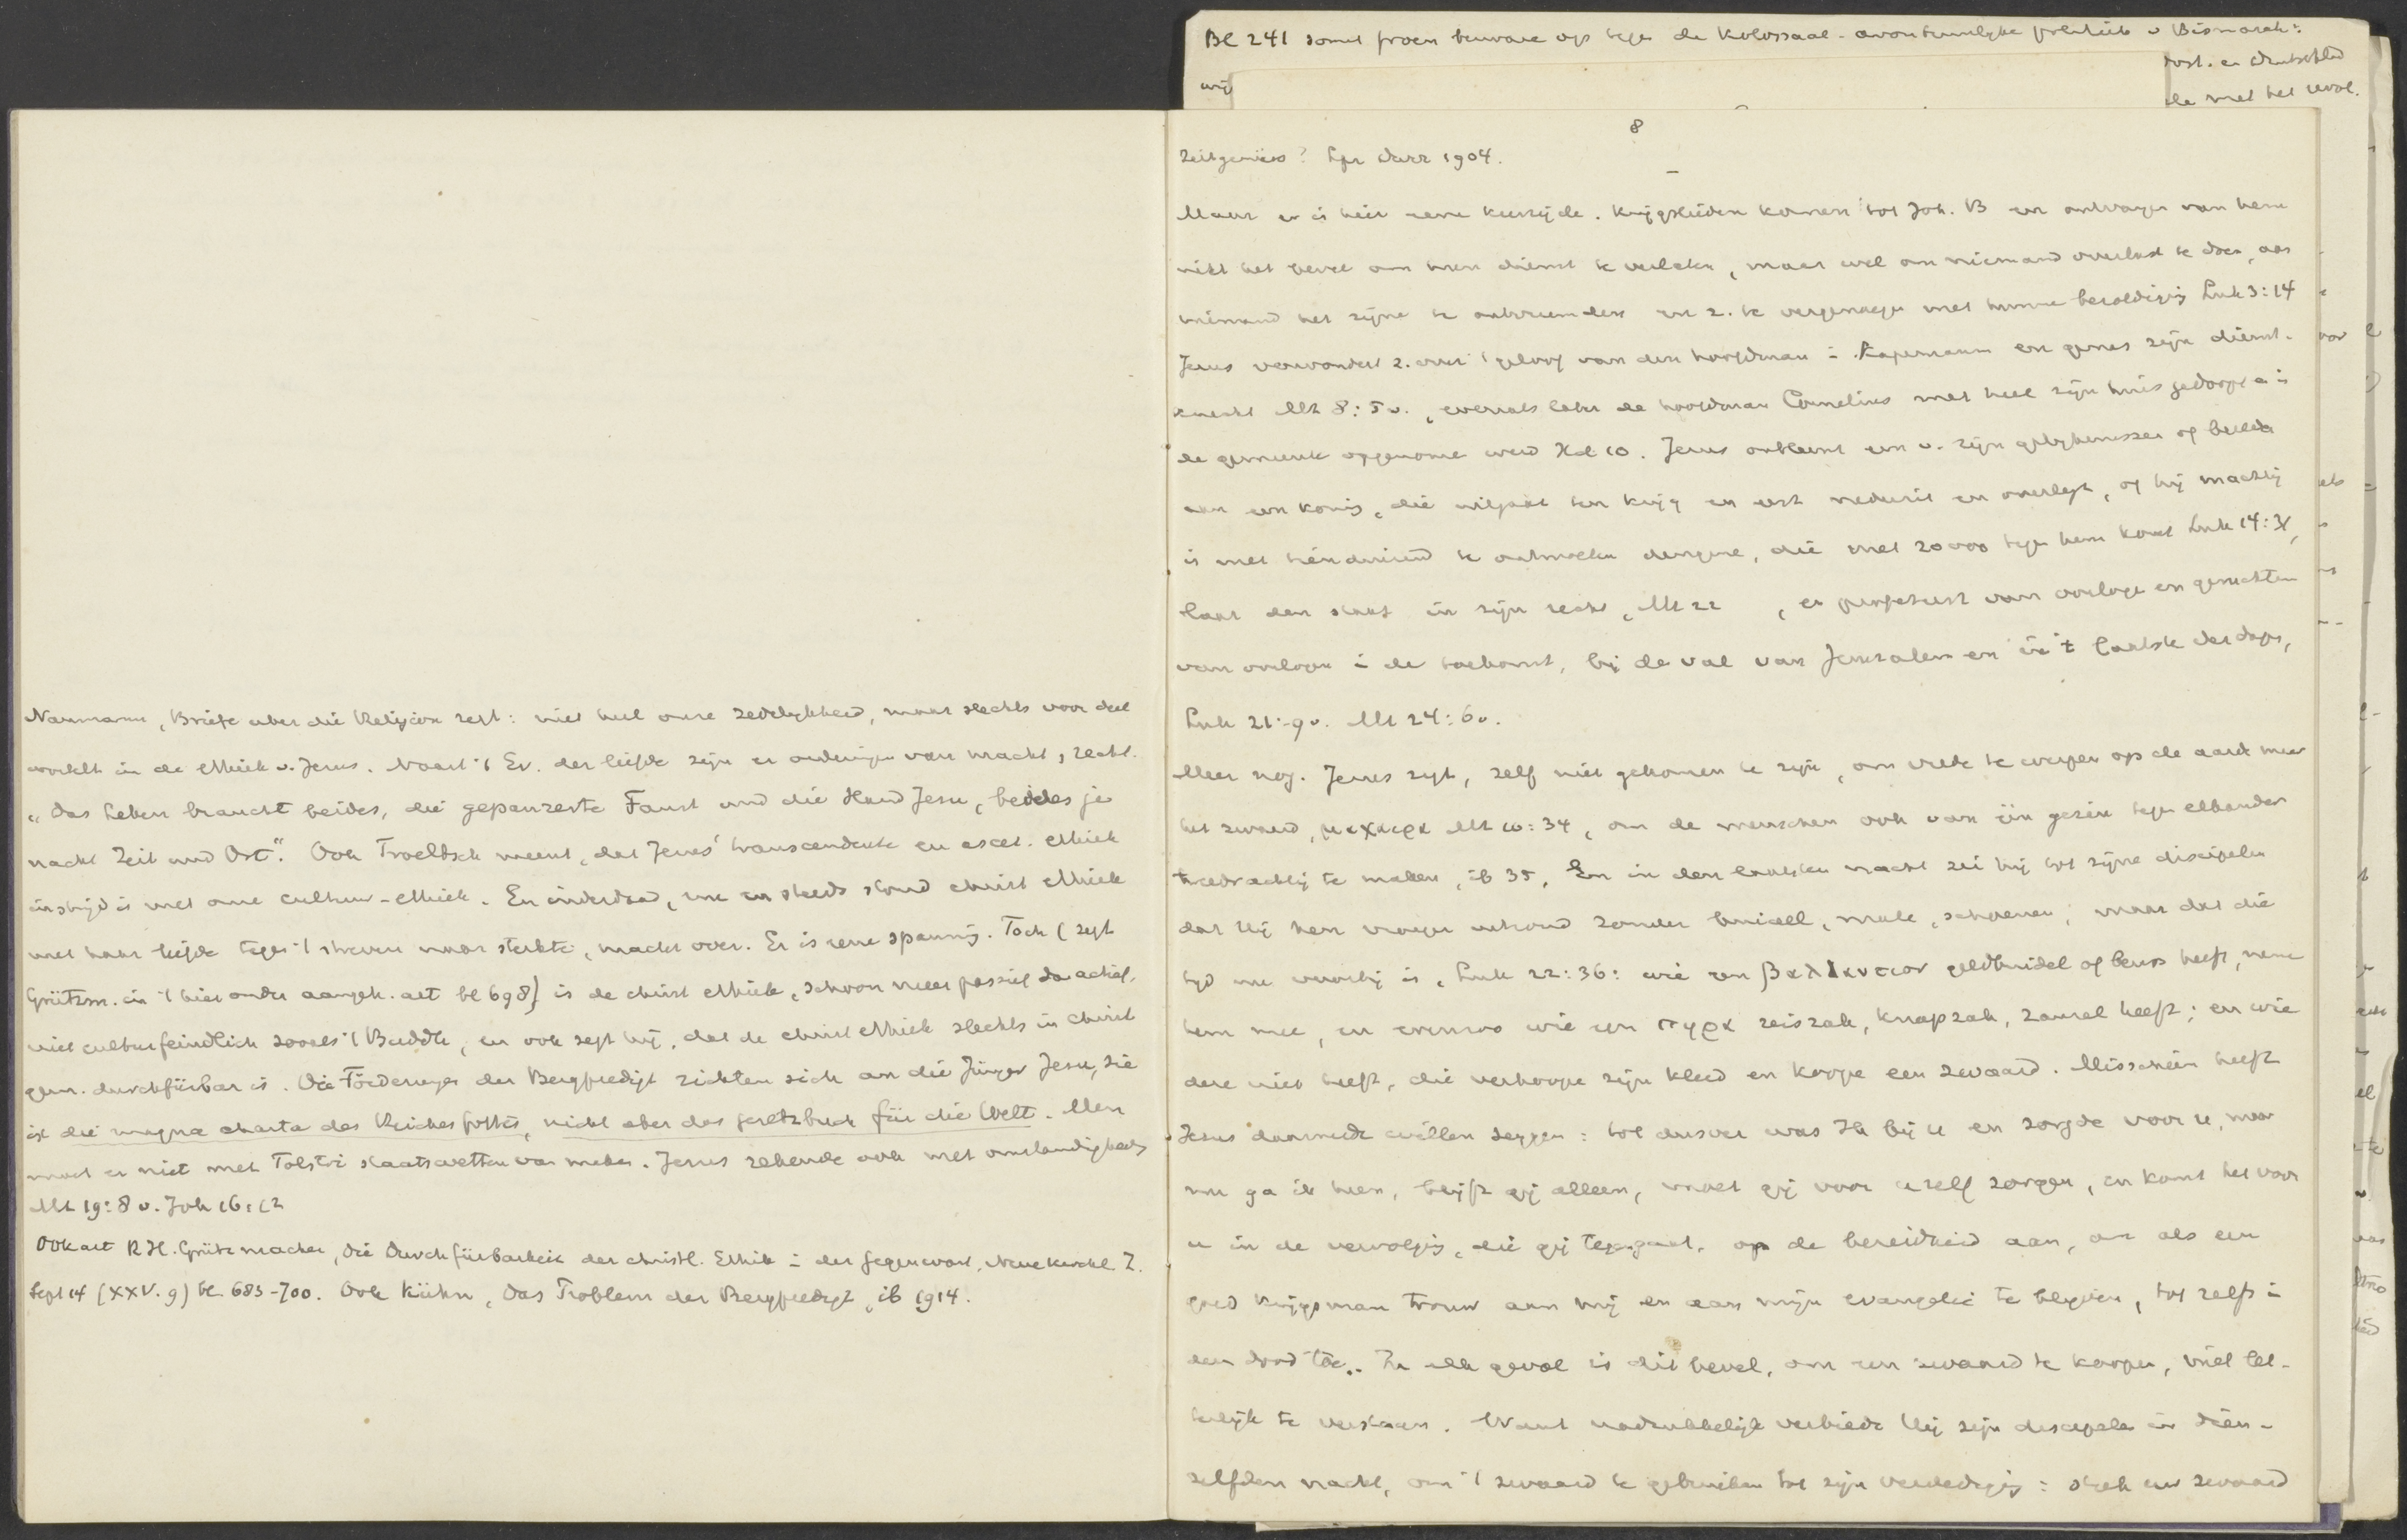 Naumann, Briefe uber die Religion zegt: niet heel onze zedelykheid, maar slechts voor deel
wortelt in de ethiek v. Jezus. Naast 't Ev. der liefde zijn er ordeningen van macht, recht.
"Das Leben braucht beides, die gepanzerte Faust und die Hand Jesu, beides je
nach Zeit und Ort". Ook Troeltsch meent, dat Jezus' transcendente en ascet. ethiek
in strijd is met onze cultuur-ethiek. En inderdaad, nu en steeds stond christ ethiek
met haar liefde tegen 't streven naar sterkte, macht over. Er is eene spanning. Toch (zegt
Grützm. in 't hier onder aangeh. art bl 698) is de christ ethiek, schoon meer passief dan actief,
niet culturfeindlich zooals 't Buddh, en ook zegt hij, dat de christ ethiek slechts in christ
gem. durchführbar is. Die Förderungen der Bergpredigt richten sich an die Jünger Jesu, sie
ist die magna charta des Reiches Gottes, nicht aber das Gesetzbuch für die Welt. Men
moet er niet met Tolstoi staatswetten van maken. Jezus rekende ook met omstandigheden
Mt 19:8 v. Joh 16:12
Ook art R.H. Grützmacher, Die Durchführbarkeit der christl. Ethik in der Gegenwart, Neue Kirchl. Z.
Sept 14 (XXV. 9) bl. 683-700. Ook Kühn, Das Problem der Bergpredigt, ib 1914.
Bl 241 somt proen bezware op tegen de kolossaal-avontuurlyke politiek v Bismarck:
wij
oost. en Deutschland
die met het revol.
8
zeitgemäss? Lpz Dürr 1904.
Maar er is hier eene keerzijde. Krijgslieden komen tot Joh. B en ontvangen van hem
niet het bevel om hun dienst te verlaten, maar wel om niemand overlast te doen, aan
niemand het zijne te ontvreemden en z. te vergenoegen met hunne bezoldiging Luk 3:14
Jezus verwondert z. over 't geloof van den hoofdman in Kapernaum en genas zijn dienst-
knecht Mt 8:5 v., evenals later de hoofdman Cornelius met heel zijn huis gedoopt en in
de gemeente opgenomen werd Hd 10. Jezus ontleent een v. zijn gelykenissen of beelden
aan een koning, die uitgaat ten krijg en eerst nederzit en overlegt, of hij machtig
is met tienduizend te ontmoeten dengene, die met 20000 tegen hem komt Luk 14:31,
laat den staat in zijn recht, Mt 22 , en profeteert van oorlogen en geruchten
van oorlogen in de toekomst, bij de val van Jeruzalem en in 't laatste der dagen,
Luk 21:9 v. Mt 24:6 v.
Meer nog. Jezus zegt, zelf niet gekomen te zijn, om vrede te werpen op de aarde maar
het zwaard, μαχαιρα Mt 10:34, om de menschen ook van één gezin tegen elkander
tweedrachtig te maken, ib 35, En in den laatsten nacht zei hij tot zijne discipelen
dat Hij hen vroeger uitzond zonder buidel, male, schoenen; maar dat die
tyd nu voorbij is, Luk 22:36: wie een βαλλαντιον geldbuidel of beurs heeft, neme
hem mee, en evenzoo wie een πηρα reiszak, knapzak, zaurel heeft; en wie
deze niet heeft, die verkoope zijn kleed en koope een zwaard. Misschien heeft
Jezus daarmede willen zeggen: tot dusver was Ik bij u en zorgde voor u, maar
nu ga ik heen, blijft gij alleen, moet gij voor u zelf zorgen, en komt het voor
u in de vervolging, die gij tegengaat, op de bereidheid aan, om als een
goed krijgsman trouw aan mij en aan mijn evangelie te blyven, tot zelfs in
den dood toe.. In elk geval is dit bevel, om een zwaard te koopen, niet let-
terlijk te verstaan. Want nadrukkelijk verbiedt Hij zijn discipelen in dien-
zelfden nacht, om 't zwaard te gebruiken tot zijn verdediging: steek uw zwaard